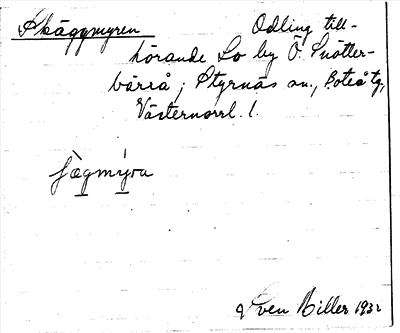 Skäggmyren Odling till-
hörande Lo by Ö. Snätter-
bärså; Styrnäs sn., Boteå tg,
Västernorrl. l.
Sven Biller 1932